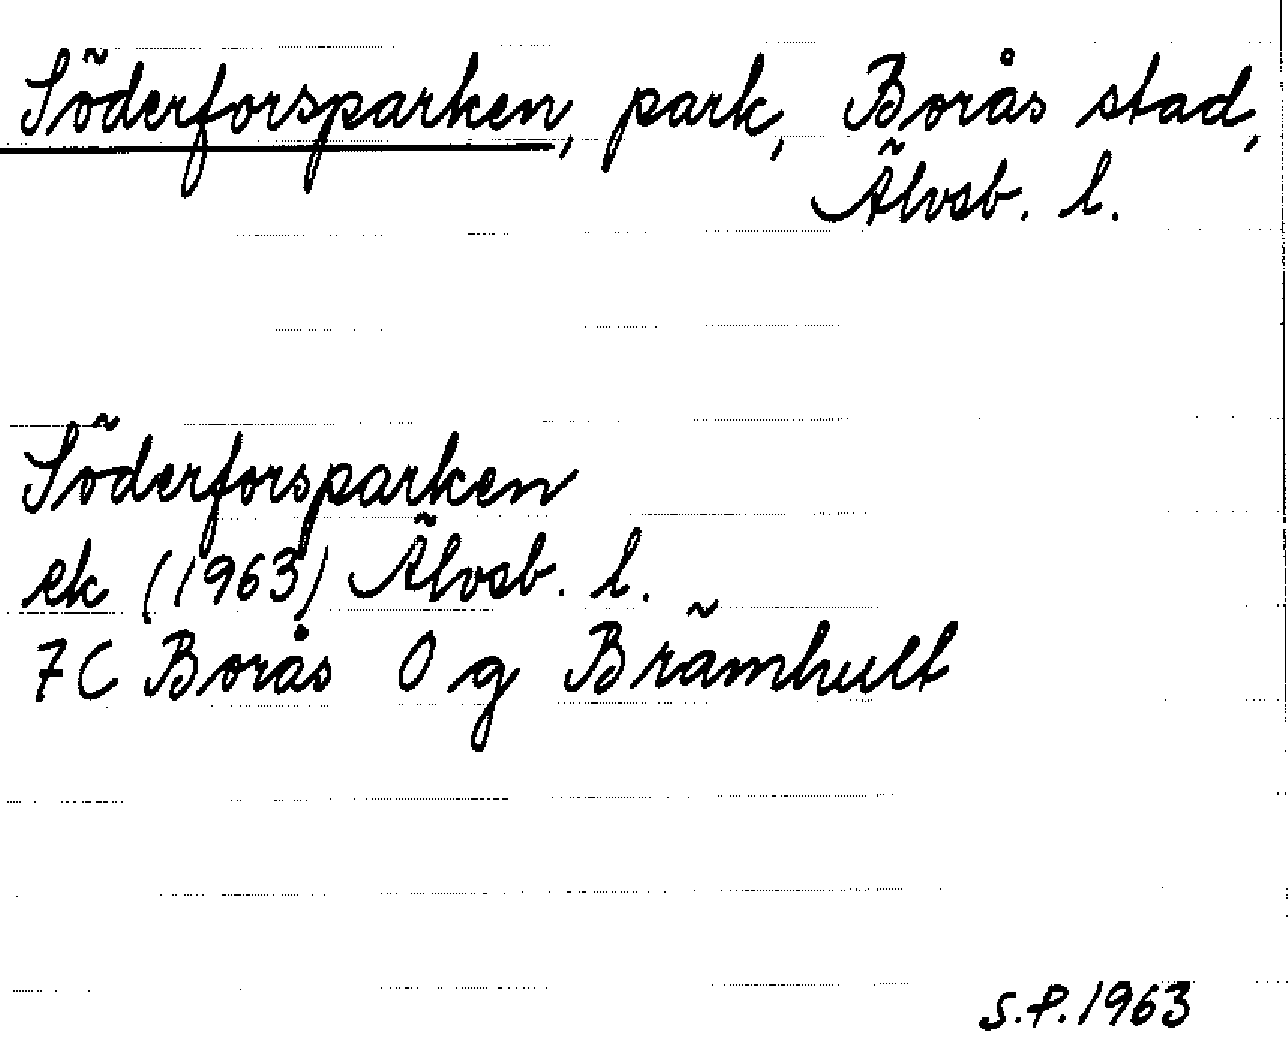 Söderforsparken, park, Borås stad,
Älvsb. l.
Söderforsparken
ek (1963) Älvsb. l.
7C Borås 0 g Brämhult
S.P. 1963